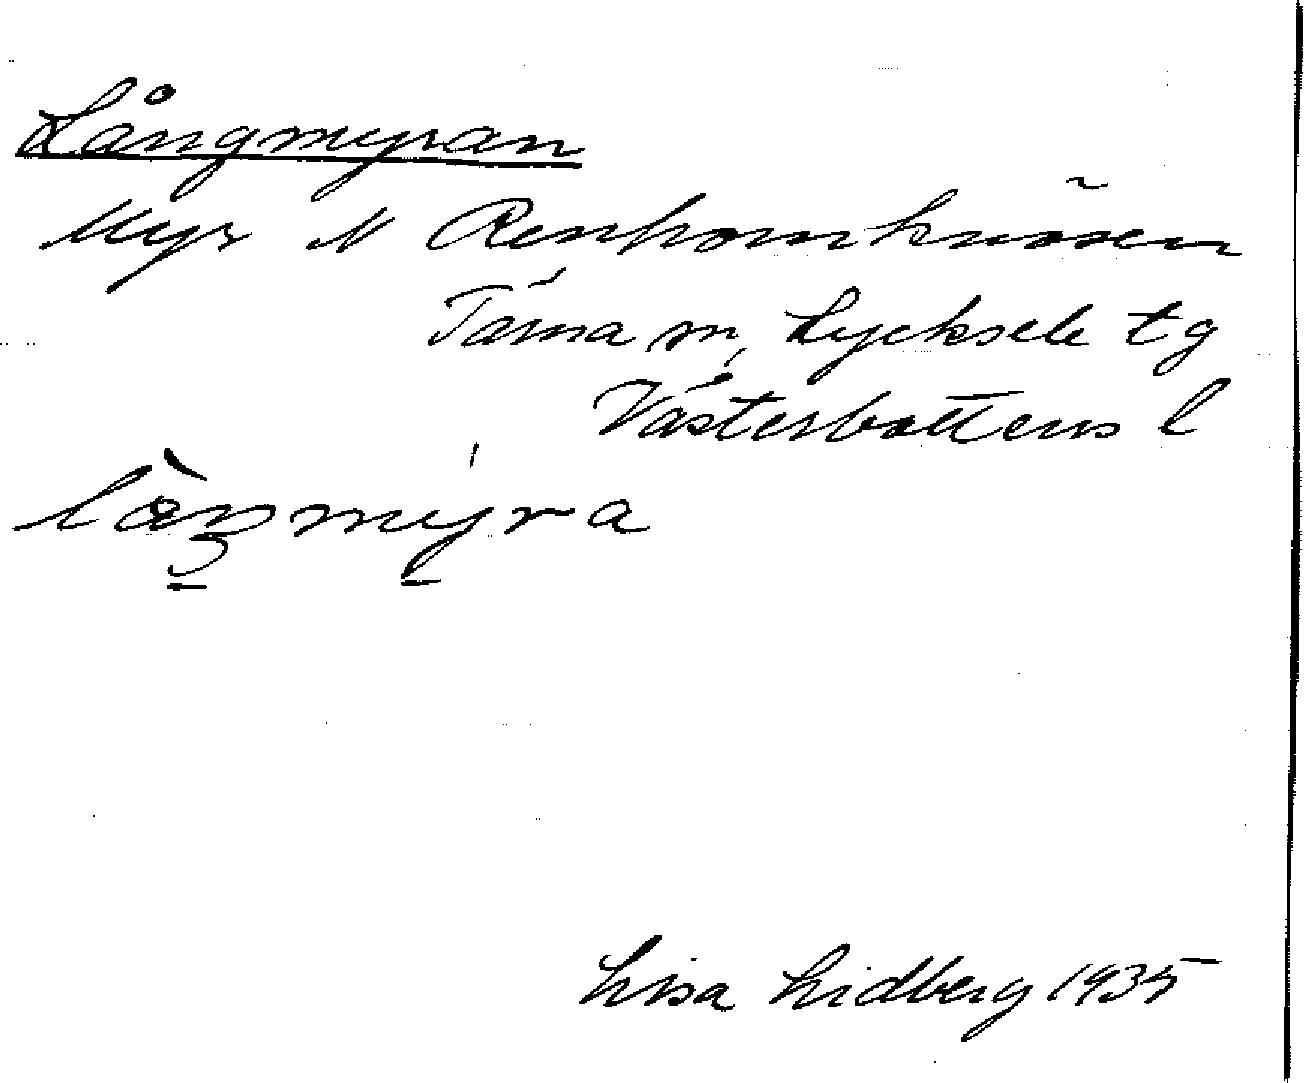 Långmyran
Myr N Renhornknösen
Tärna sn, Lycksele tg
Västerbottens l
Lisa Lidberg 1935